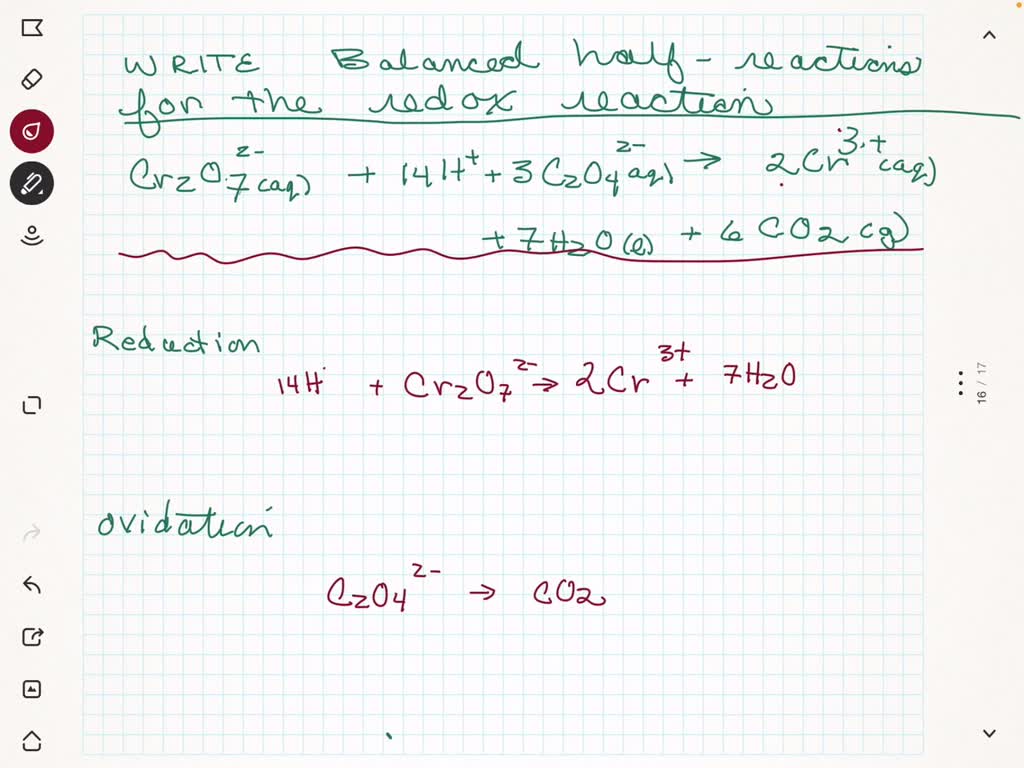 WRITE Balanced half-reactions
for the redox reaction
Cr2O7 2- (aq) + 14H+ + 3C2O4 2- (aq) → 2Cr 3+ (aq)
+ 7H2O(l) + 6CO2(g)
Reduction
14H + Cr2O7 2- → 2Cr 3+ + 7H2O
16 / 17
oxidation
C2O4 2- → CO2